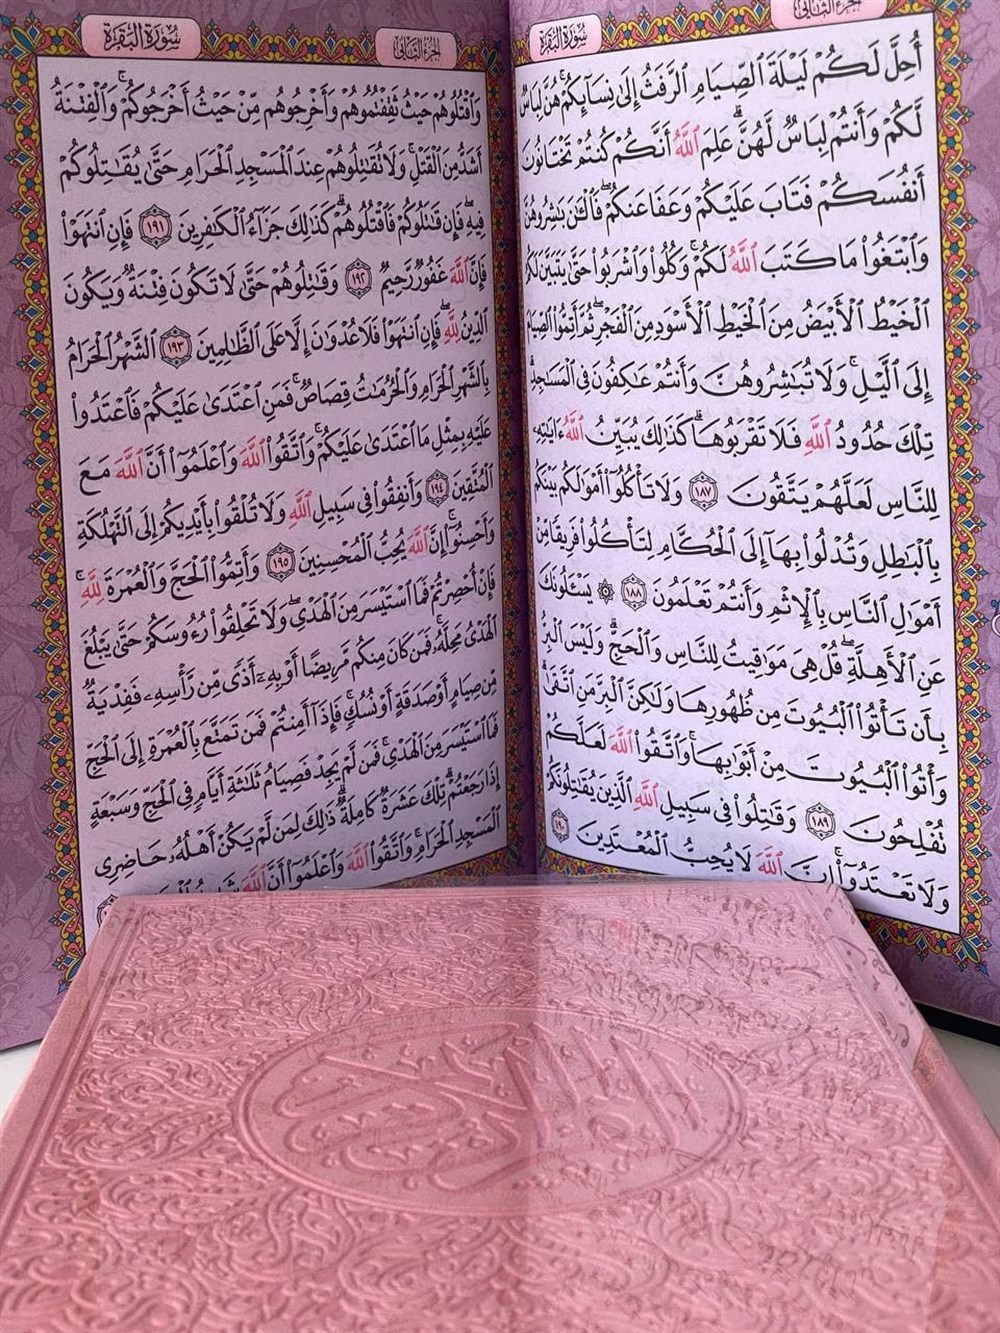 سُورَةُ البَقَرَةِ
الجزء الثاني
أُحِلَّ لَكُمْ لَيْلَةَ ٱلصِّيَامِ ٱلرَّفَثُ إِلَىٰ نِسَآئِكُمْ ۚ هُنَّ لِبَاسٌ
لَّكُمْ وَأَنتُمْ لِبَاسٌ لَّهُنَّ ۗ عَلِمَ ٱللَّهُ أَنَّكُمْ كُنتُمْ تَخْتَانُونَ
أَنفُسَكُمْ فَتَابَ عَلَيْكُمْ وَعَفَا عَنكُمْ ۖ فَٱلْـَٰٔنَ بَٰشِرُوهُنَّ
وَٱبْتَغُوا۟ مَا كَتَبَ ٱللَّهُ لَكُمْ ۚ وَكُلُوا۟ وَٱشْرَبُوا۟ حَتَّىٰ يَتَبَيَّنَ لَكُمُ
ٱلْخَيْطُ ٱلْأَبْيَضُ مِنَ ٱلْخَيْطِ ٱلْأَسْوَدِ مِنَ ٱلْفَجْرِ ۖ ثُمَّ أَتِمُّوا۟ ٱلصِّيَامَ
إِلَى ٱلَّيْلِ ۚ وَلَا تُبَٰشِرُوهُنَّ وَأَنتُمْ عَٰكِفُونَ فِى ٱلْمَسَٰجِدِ ۗ
تِلْكَ حُدُودُ ٱللَّهِ فَلَا تَقْرَبُوهَا ۗ كَذَٰلِكَ يُبَيِّنُ ٱللَّهُ ءَايَٰتِهِۦ
لِلنَّاسِ لَعَلَّهُمْ يَتَّقُونَ ١٨٧ وَلَا تَأْكُلُوٓا۟ أَمْوَٰلَكُم بَيْنَكُم
بِٱلْبَٰطِلِ وَتُدْلُوا۟ بِهَآ إِلَى ٱلْحُكَّامِ لِتَأْكُلُوا۟ فَرِيقًا مِّنْ
أَمْوَٰلِ ٱلنَّاسِ بِٱلْإِثْمِ وَأَنتُمْ تَعْلَمُونَ ١٨٨ ۞ يَسْـَٔلُونَكَ
عَنِ ٱلْأَهِلَّةِ ۖ قُلْ هِىَ مَوَٰقِيتُ لِلنَّاسِ وَٱلْحَجِّ ۗ وَلَيْسَ ٱلْبِرُّ
بِأَن تَأْتُوا۟ ٱلْبُيُوتَ مِن ظُهُورِهَا وَلَٰكِنَّ ٱلْبِرَّ مَنِ ٱتَّقَىٰ ۗ
وَأْتُوا۟ ٱلْبُيُوتَ مِنْ أَبْوَٰبِهَا ۚ وَٱتَّقُوا۟ ٱللَّهَ لَعَلَّكُمْ
تُفْلِحُونَ ١٨٩ وَقَٰتِلُوا۟ فِى سَبِيلِ ٱللَّهِ ٱلَّذِينَ يُقَٰتِلُونَكُمْ
وَلَا تَعْتَدُوٓا۟ ۚ إِنَّ ٱللَّهَ لَا يُحِبُّ ٱلْمُعْتَدِينَ ١٩٠
الجزء الثاني
سُورَةُ البَقَرَةِ
وَٱقْتُلُوهُمْ حَيْثُ ثَقِفْتُمُوهُمْ وَأَخْرِجُوهُم مِّنْ حَيْثُ أَخْرَجُوكُمْ ۚ وَٱلْفِتْنَةُ
أَشَدُّ مِنَ ٱلْقَتْلِ ۚ وَلَا تُقَٰتِلُوهُمْ عِندَ ٱلْمَسْجِدِ ٱلْحَرَامِ حَتَّىٰ يُقَٰتِلُوكُمْ
فِيهِ ۖ فَإِن قَٰتَلُوكُمْ فَٱقْتُلُوهُمْ ۗ كَذَٰلِكَ جَزَآءُ ٱلْكَٰفِرِينَ ١٩١ فَإِنِ ٱنتَهَوْا۟
فَإِنَّ ٱللَّهَ غَفُورٌ رَّحِيمٌ ١٩٢ وَقَٰتِلُوهُمْ حَتَّىٰ لَا تَكُونَ فِتْنَةٌ وَيَكُونَ
ٱلدِّينُ لِلَّهِ ۖ فَإِنِ ٱنتَهَوْا۟ فَلَا عُدْوَٰنَ إِلَّا عَلَى ٱلظَّٰلِمِينَ ١٩٣ ٱلشَّهْرُ ٱلْحَرَامُ
بِٱلشَّهْرِ ٱلْحَرَامِ وَٱلْحُرُمَٰتُ قِصَاصٌ ۚ فَمَنِ ٱعْتَدَىٰ عَلَيْكُمْ فَٱعْتَدُوا۟
عَلَيْهِ بِمِثْلِ مَا ٱعْتَدَىٰ عَلَيْكُمْ ۚ وَٱتَّقُوا۟ ٱللَّهَ وَٱعْلَمُوٓا۟ أَنَّ ٱللَّهَ مَعَ
ٱلْمُتَّقِينَ ١٩٤ وَأَنفِقُوا۟ فِى سَبِيلِ ٱللَّهِ وَلَا تُلْقُوا۟ بِأَيْدِيكُمْ إِلَى ٱلتَّهْلُكَةِ ۛ
وَأَحْسِنُوٓا۟ ۛ إِنَّ ٱللَّهَ يُحِبُّ ٱلْمُحْسِنِينَ ١٩٥ وَأَتِمُّوا۟ ٱلْحَجَّ وَٱلْعُمْرَةَ لِلَّهِ ۚ
فَإِنْ أُحْصِرْتُمْ فَمَا ٱسْتَيْسَرَ مِنَ ٱلْهَدْىِ ۖ وَلَا تَحْلِقُوا۟ رُءُوسَكُمْ حَتَّىٰ يَبْلُغَ
ٱلْهَدْىُ مَحِلَّهُۥ ۚ فَمَن كَانَ مِنكُم مَّرِيضًا أَوْ بِهِۦٓ أَذًى مِّن رَّأْسِهِۦ فَفِدْيَةٌ
مِّن صِيَامٍ أَوْ صَدَقَةٍ أَوْ نُسُكٍ ۚ فَإِذَآ أَمِنتُمْ فَمَن تَمَتَّعَ بِٱلْعُمْرَةِ إِلَى ٱلْحَجِّ
فَمَا ٱسْتَيْسَرَ مِنَ ٱلْهَدْىِ ۚ فَمَن لَّمْ يَجِدْ فَصِيَامُ ثَلَٰثَةِ أَيَّامٍ فِى ٱلْحَجِّ وَسَبْعَةٍ
إِذَا رَجَعْتُمْ ۗ تِلْكَ عَشَرَةٌ كَامِلَةٌ ۗ ذَٰلِكَ لِمَن لَّمْ يَكُنْ أَهْلُهُۥ حَاضِرِى
ٱلْمَسْجِدِ ٱلْحَرَامِ ۚ وَٱتَّقُوا۟ ٱللَّهَ وَٱعْلَمُوٓا۟ أَنَّ ٱللَّهَ شَدِيدُ
القرآن الكريم